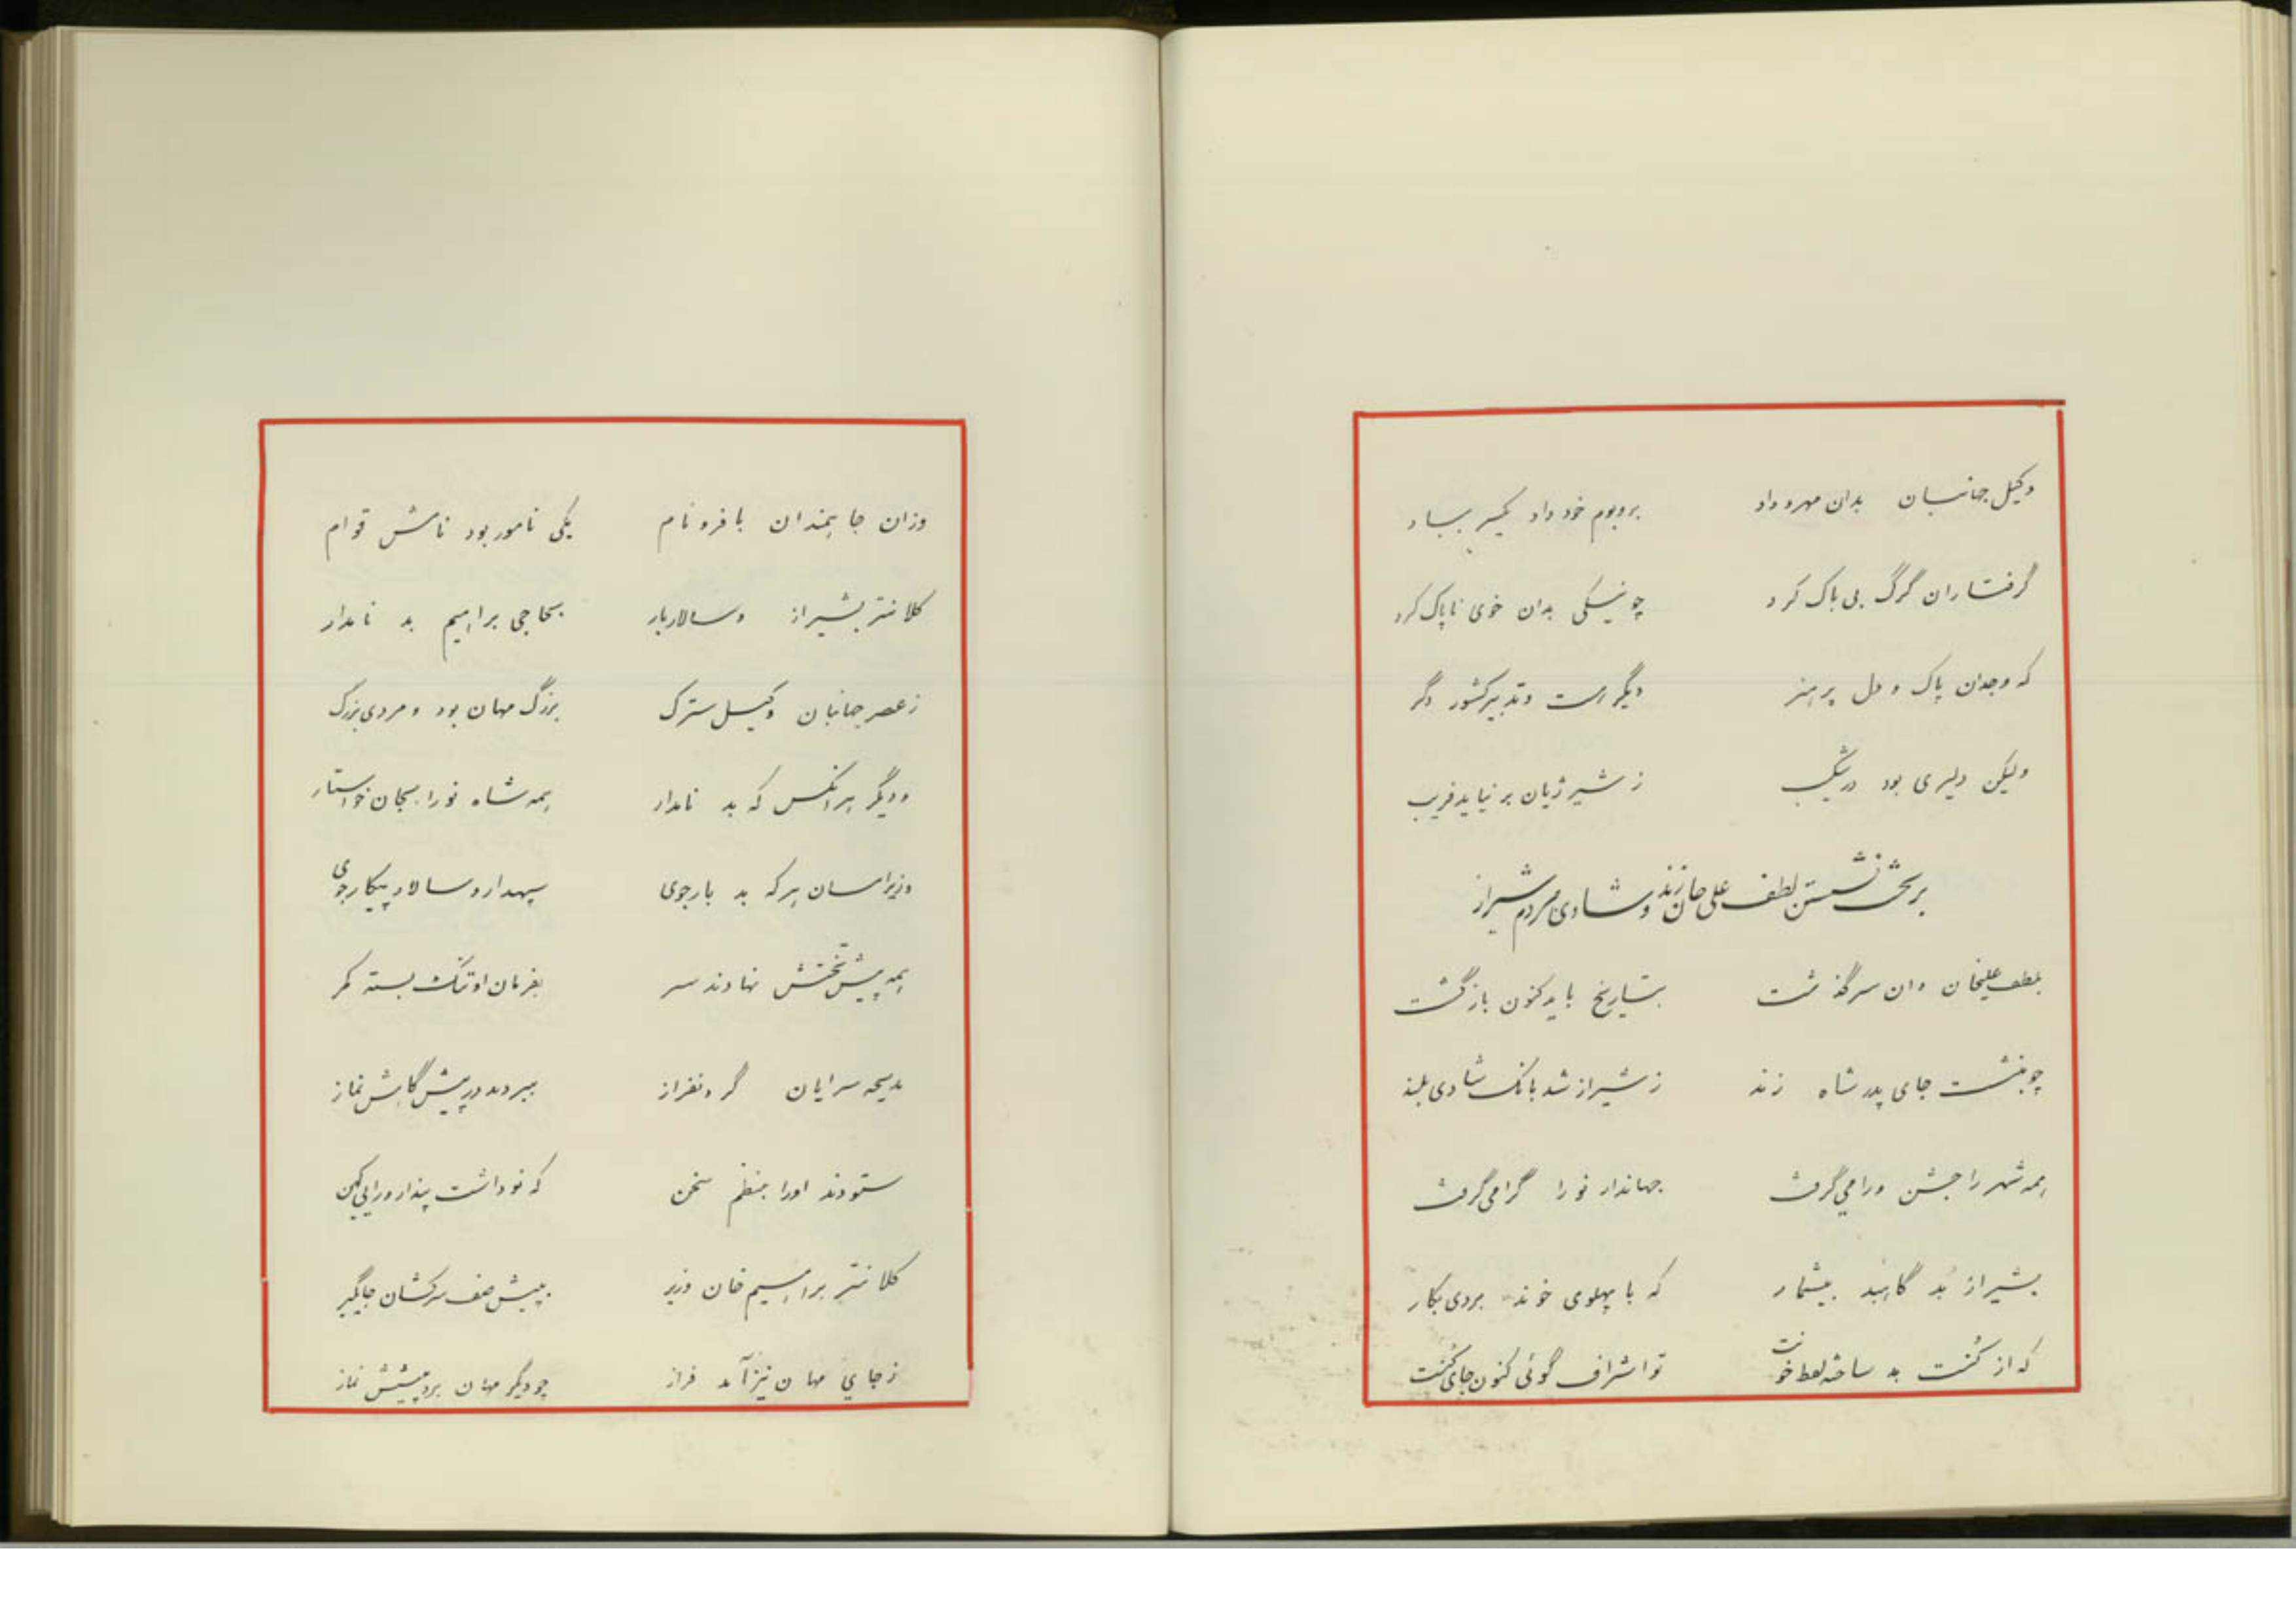 وکیل جهانبان بدان مهر و داد بر و بوم خود داد یکسر بباد
گرفتار ان گرگ بی باک کرد چو نیکی بدان خوی ناپاک کرد
که وجدان پاک و دل پر هنر دیگر است و تدبیر کشور دگر
ولیکن دلیری بود در شکیب ز شیر ژیان بر نیاید فریب
بر تخت نشستن لطف علی خان زند و شادی مردم شیراز
بلطف علیخان و ان سرگذشت بتاریخ باید کنون بازگشت
چو بنشست جای پدر شاه زند ز شیراز شد بانک شادی بلند
همه شهر را جشن و رامی گرفت جهاندار نو را گرامی گرفت
بشیراز بُد گاهبد بیشمار که با پهلوی خوند بردی بکار
که از کُنت بد ساخته لفظ خونت تو اشراف گوئی کنون جای کُنت
وزان جاهمندان با فر و نام یکی نامور بود نامش قوام
کلانتر بشیراز و سالار بار بحاجی براهیم بد نامدار
ز عصر جهانبان وکیل سترک بزرگ مهان بود و مردی بزرگ
و دیگر هر انکس که بد نامدار همه شاه نو را بجان خواستار
وزیر اسان هر که بد بارجوی سپهدار و سالار پیکارجوی
همه پیش تختش نهادند سر بفرمان او تنک بسته کمر
مدیحه سرایان گردنفراز ببردند در پیش گاهش نماز
ستودند او را بنظم سخن که نو داشت پندار و رایی کهن
کلانتر براهیم خان وزیر بپیش صف سرکشان جایگیر
ز جای مهان نیز آمد فراز چو دیگر مهان برد پیشش نماز